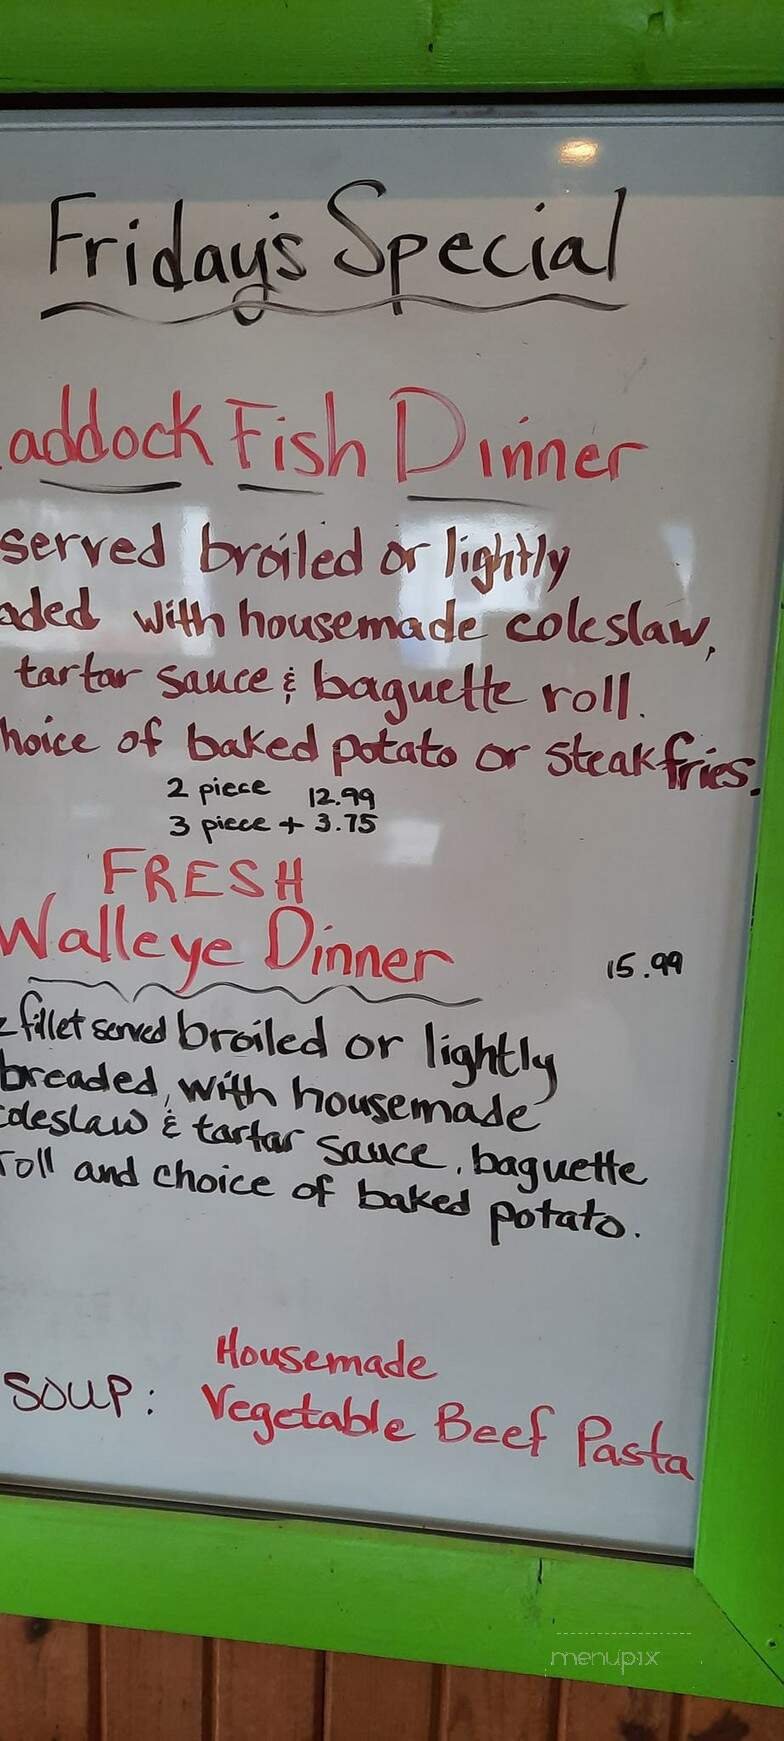 Friday's Special
addock Fish Dinner
served broiled or lightly
aded with housemade coleslaw,
tartar sauce & baguette roll.
hoice of baked potato or steak fries.
2 piece 12.99
3 piece + 3.75
FRESH
Walleye Dinner 15.99
fillet served broiled or lightly
breaded, with housemade
coleslaw & tartar sauce, baguette
roll and choice of baked potato.
Housemade
SOUP: Vegetable Beef Pasta
menupix